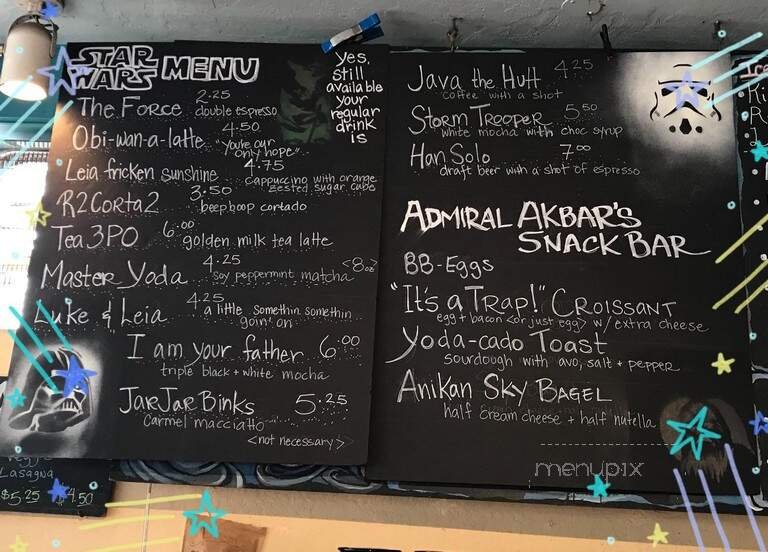 STAR WARS MENU
The Force 2.25
double espresso
Obi-wan-a-latte 4.50
"You're our only hope"
Leia fricken sunshine 4.75
cappuccino with orange zested sugar cube
R2Corta2 3.50
beep boop cortado
Tea3PO 6.00
golden milk tea latte
Master Yoda 4.25
soy peppermint matcha <8oz>
Luke & Leia 4.25
a little somethin somethin goin' on
I am your father 6.00
triple black + white mocha
JarJar Binks 5.25
Carmel macciatto
<not necessary>
Yes,
still
available
your
regular
drink
is
Java the Hutt 4.25
coffee with a shot
Storm Trooper 5.50
white mocha with choc syrup
Han Solo 7.00
draft beer with a shot of espresso
Admiral Akbar's
Snack Bar
BB-Eggs
"It's a Trap!" Croissant
egg + bacon <or just egg> w/ extra cheese
Yoda-cado Toast
sourdough with avo, salt + pepper
Anikan Sky Bagel
half cream cheese + half nutella
menupix
Lasagna
$5.25 $4.50